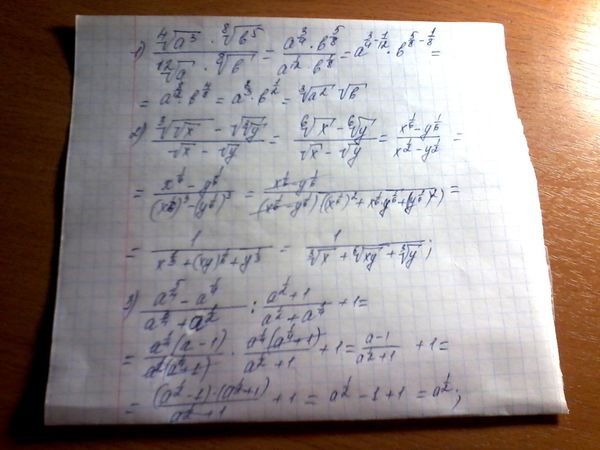 1) (⁴√a³ · ⁸√b⁵)/(¹²√a · ⁸√b) = (a^(3/4) · b^(5/8))/(a^(1/12) · b^(1/8)) = a^(3/4 - 1/12) · b^(5/8 - 1/8) =
= a^(8/12) · b^(4/8) = a^(2/3) · b^(1/2) = ³√a² √b
2) (³√√x - √³√y)/(√x - √y) = (⁶√x - ⁶√y)/(√x - √y) = (x^(1/6) - y^(1/6))/(x^(1/2) - y^(1/2)) =
= (x^(1/6) - y^(1/6))/((x^(1/6))³ - (y^(1/6))³) = (x^(1/6) - y^(1/6))/((x^(1/6) - y^(1/6))((x^(1/6))² + x^(1/6) y^(1/6) + (y^(1/6))²)) =
= 1/(x^(1/3) + (xy)^(1/6) + y^(1/3)) = 1/(³√x + ⁶√xy + ³√y);
3) (a^(5/4) - a^(1/4))/(a^(3/4) + a^(1/2)) : (a^(1/2) + 1)/(a^(1/2) + a^(1/4)) + 1 =
= (a^(1/4)(a - 1))/(a^(1/2)(a^(1/4) + 1)) · (a^(1/4)(a^(1/4) + 1))/(a^(1/2) + 1) + 1 = (a - 1)/(a^(1/2) + 1) + 1 =
= ((a^(1/2) - 1) · (a^(1/2) + 1))/(a^(1/2) + 1) + 1 = a^(1/2) - 1 + 1 = a^(1/2);